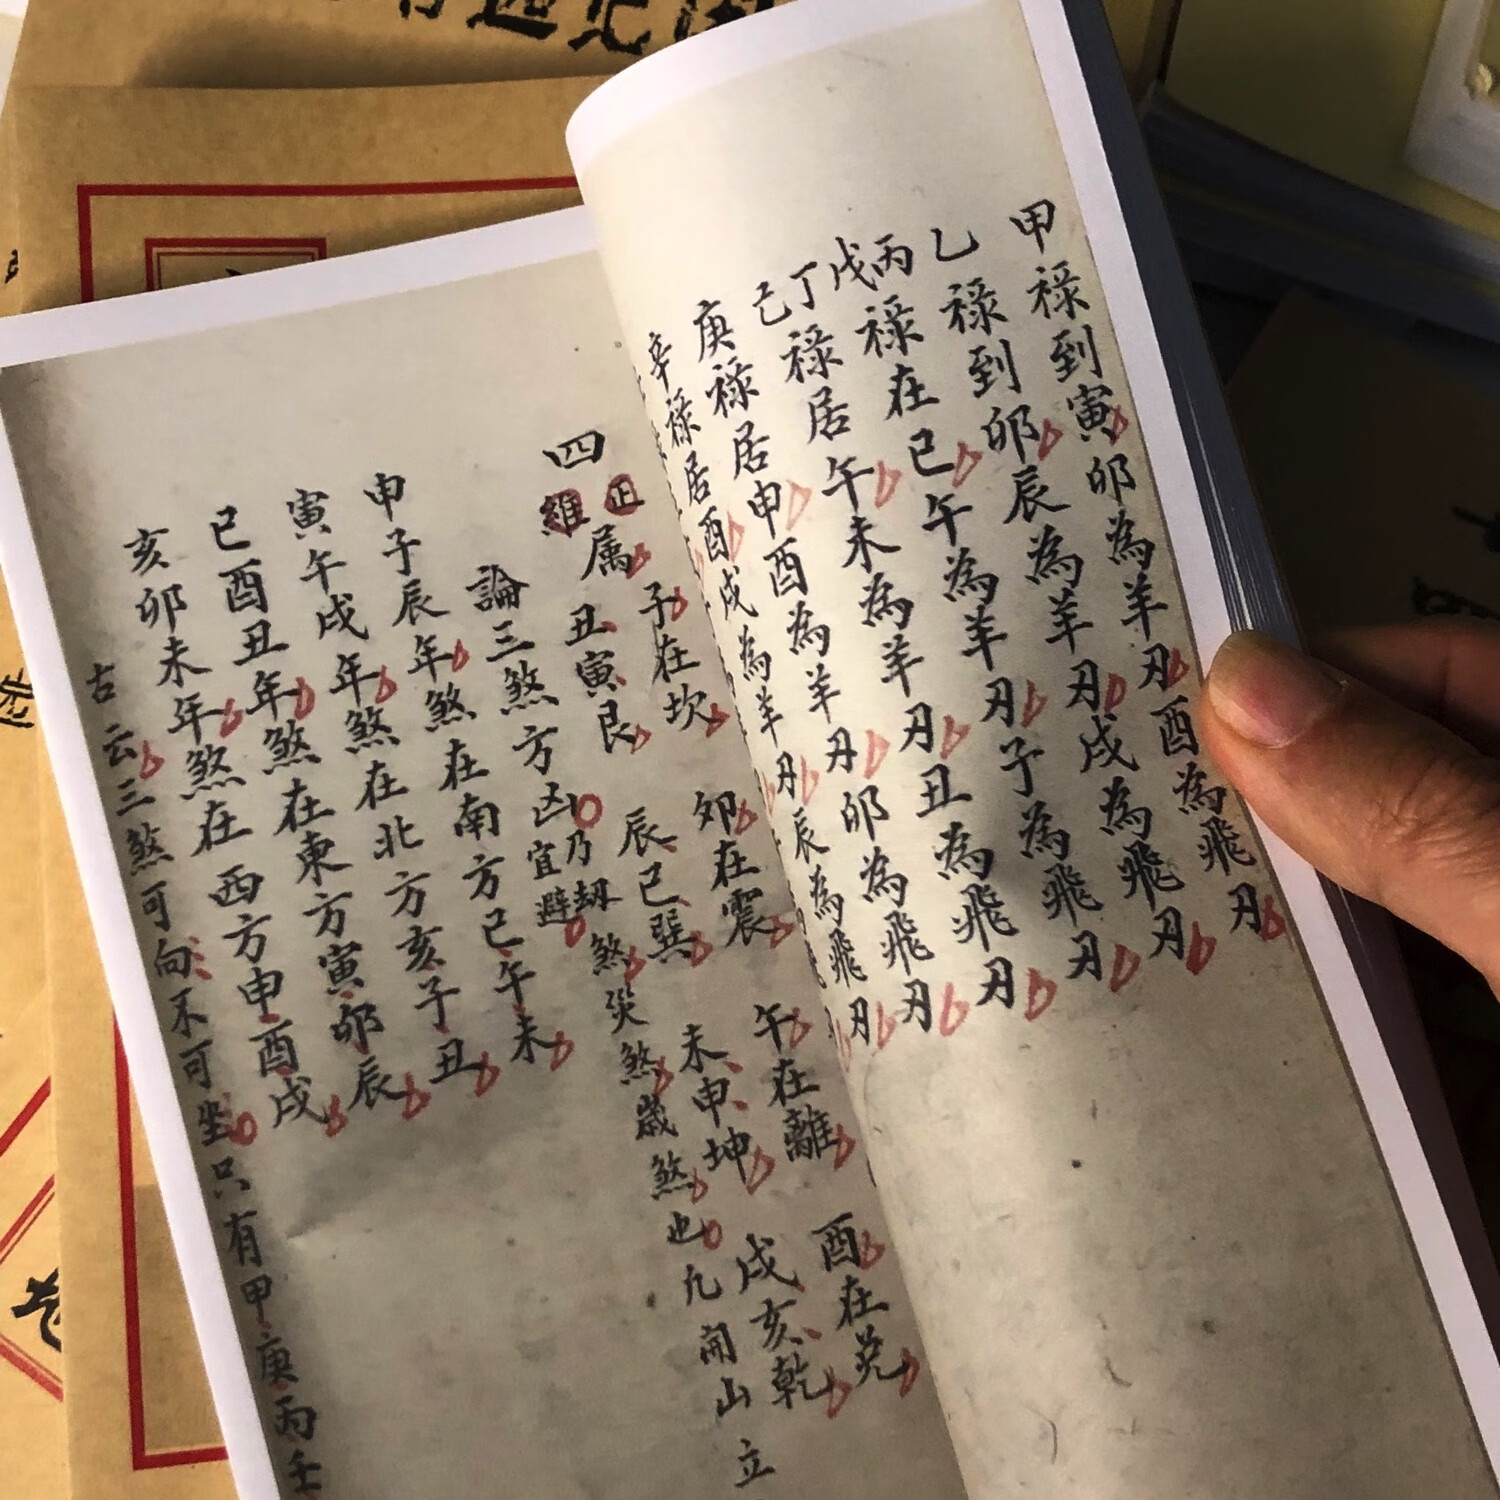 甲祿到寅卯為羊刃酉為飛刃
乙祿到卯辰為羊刃戌為飛刃
丙戊祿在巳午為羊刃子為飛刃
丁己祿居午未為羊刃丑為飛刃
庚祿居申酉為羊刃卯為飛刃
辛祿居酉戌為羊刃辰為飛刃
四正
維
属子在坎 卯在震 午在離 酉在兌
丑寅艮 辰巳巽 未申坤 戌亥乾
論三煞方凶乃劫煞災煞歲煞也凡開山立
宜避
申子辰年煞在南方巳午未
寅午戌年煞在北方亥子丑
巳酉丑年煞在東方寅卯辰
亥卯未年煞在西方申酉戌
古云三煞可向不可坐只有甲庚丙壬